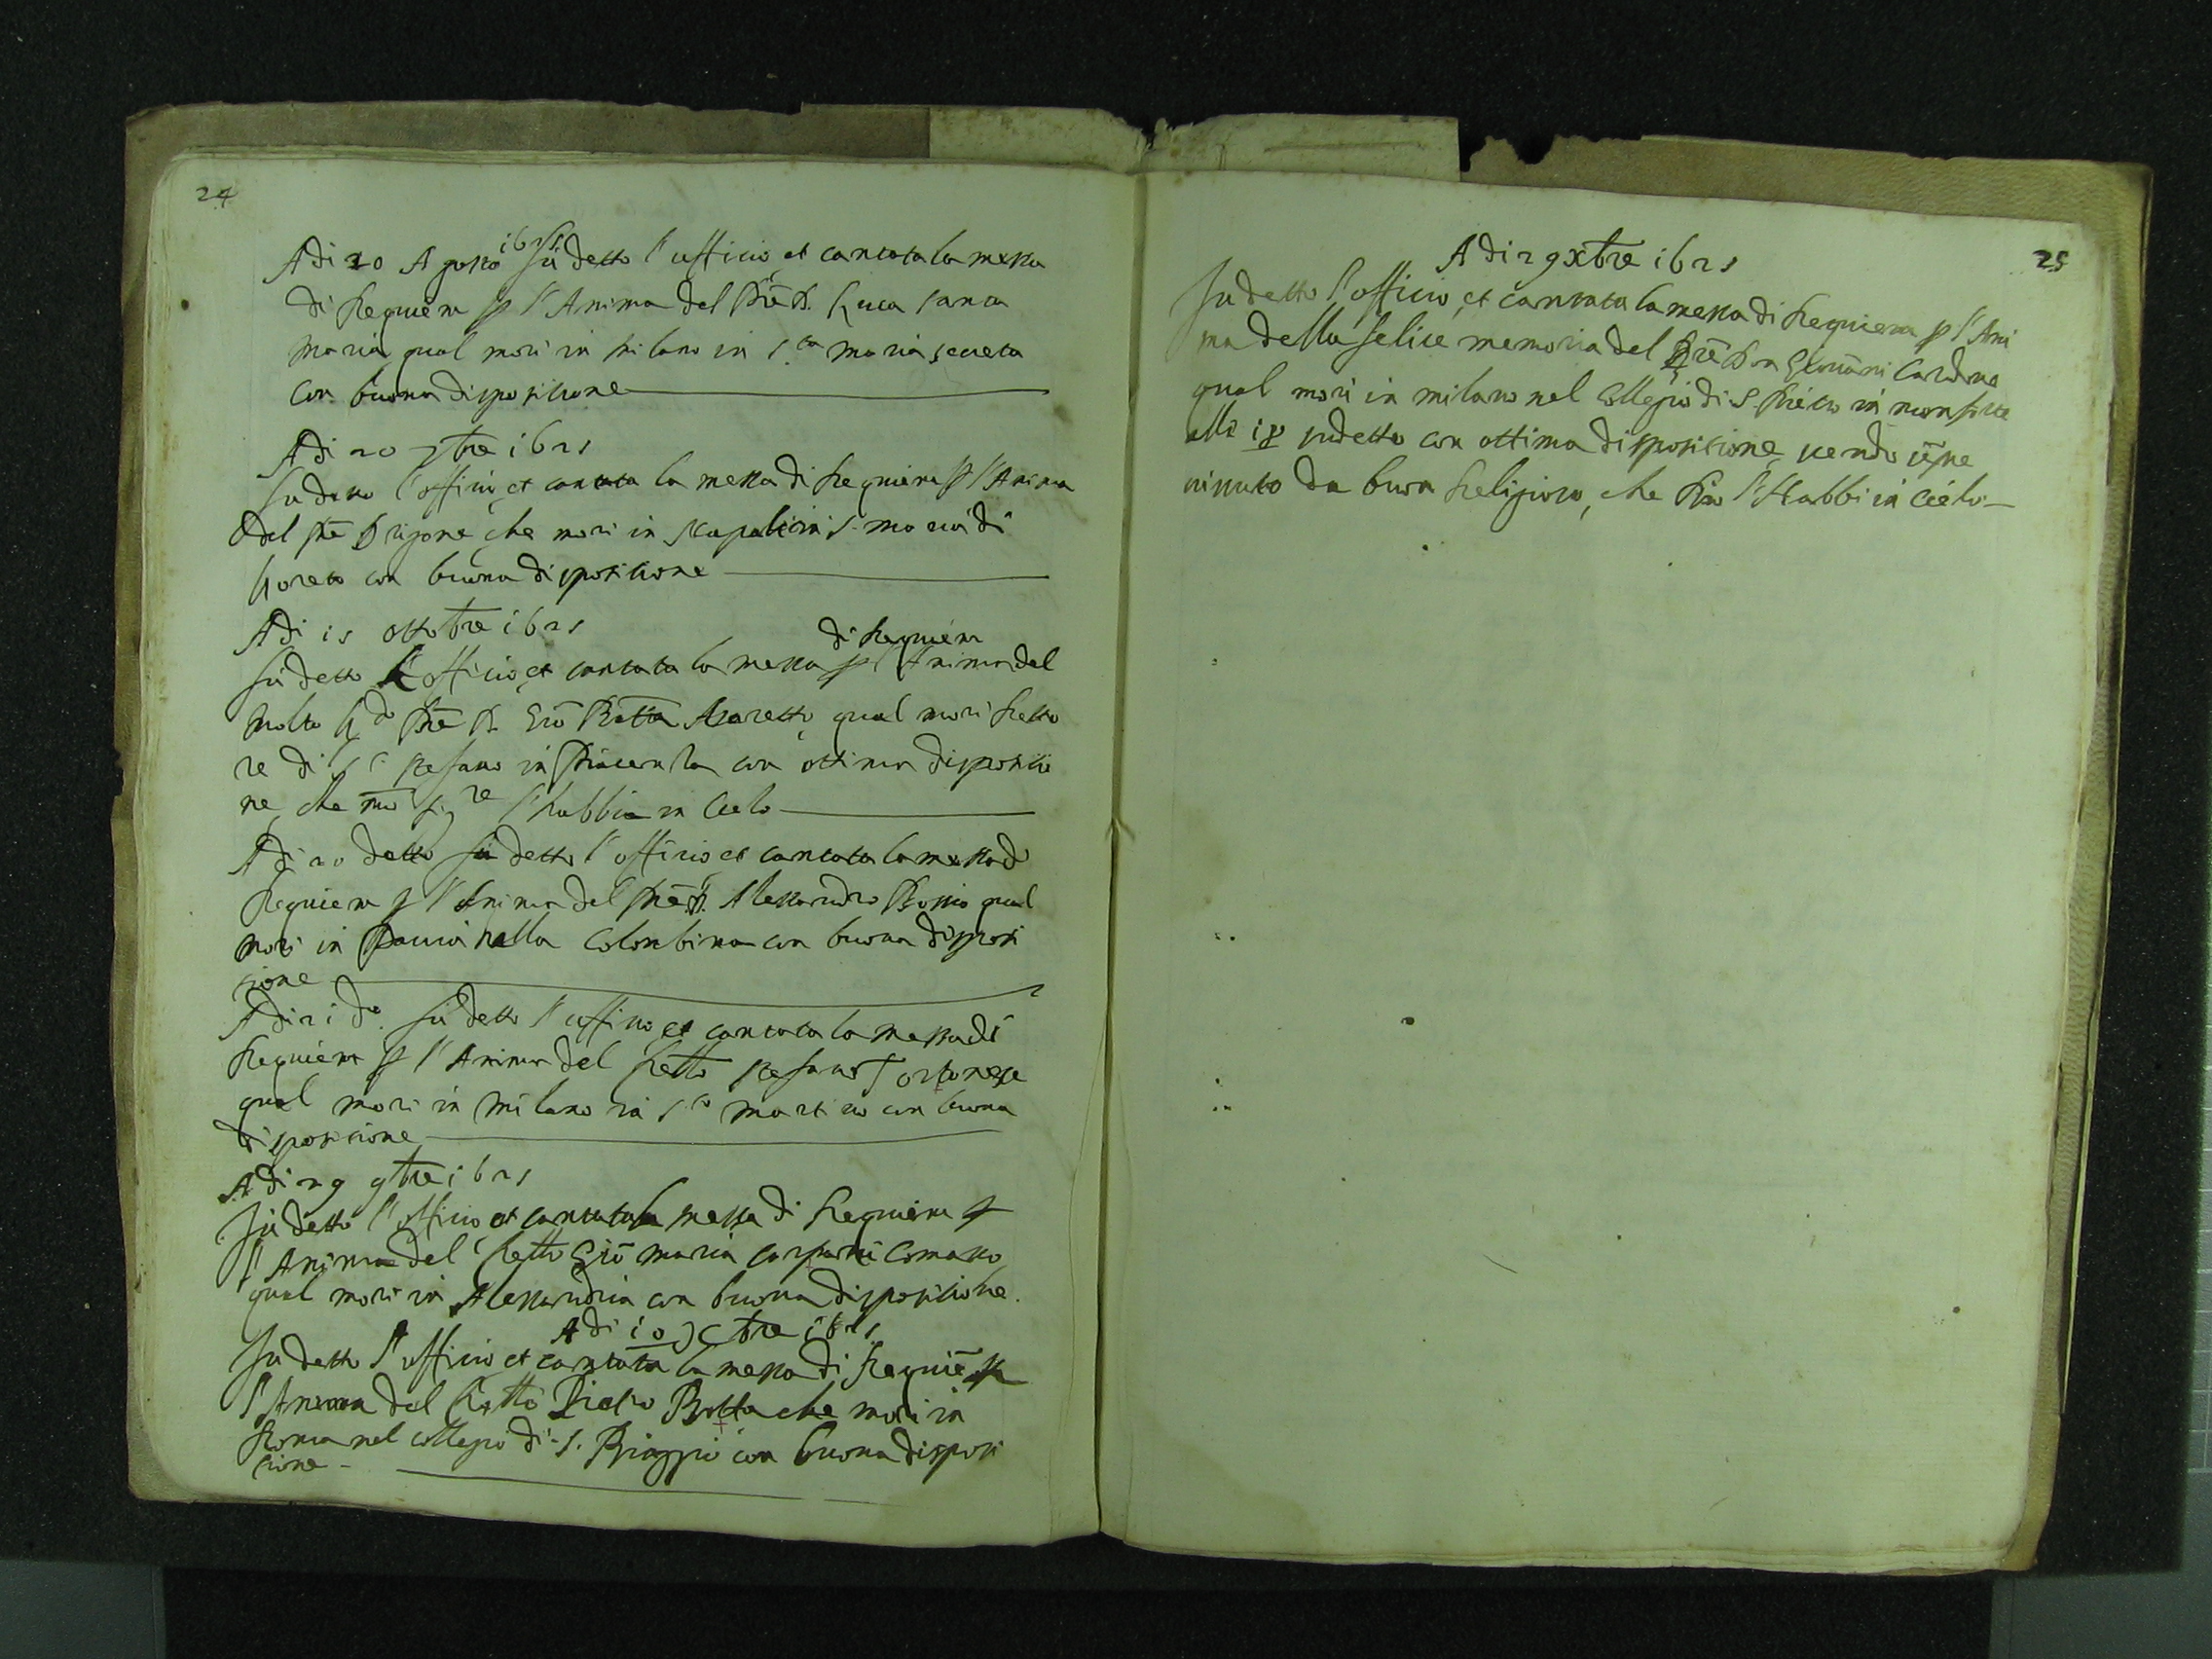 24
Adi 20 Agosto 1625 fu detto l'ufficio et cantata la messa
di Requiem p l'Anima del Pre D. Luca santa
Maria qual morì in Milano in S.ta maria secreta
con buona dispositione
Adi 20 7bre 1625
fu detto l'officio et cantata la messa di Requiem p l'Anima
del Pre Drigone che morì in Napoli in S. maria di
Loreto con buona dispositione
Adi 15 ottobre 1625
di Requiem
fu detto l'officio et cantata la messa p l'Anima del
Molto R.do Pre D. Gio Batta Assaretto qual morì Retto
re di S. stefano in Piacenza con ottima dispositio
ne che nro sig.re l'habbia in Cielo
Adi 20 detto fu detto l'officio et cantata la messa di
Requiem p l'Anima del Pre D. Alessandro Bossio qual
morì in Pavia nella Colombina con buona disposi
tione
Adi 21 do. fu detto l'ufficio et cantata la messa di
Requiem p l'Anima del frello stefano Tortonese
qual morì in Milano in S.to martino con buona
dispositione
Adi 29 9bre 1625
fu detto l'officio et cantata la messa di Requiem p
l'Anima del frello Gio maria carpani Comasco
qual morì in Alessandria con buona dispositione.
Adi 10 Xbre 1625
fu detto l'ufficio et cantata la messa di Requiē p
l'Anima del frello Pietro Botta che morì in
Roma nel collegio di S. Biaggio con buona disposi
tione -
25
Adi 29 Xbre 1625
fu detto l'officio, et cantata la messa di Requiem p l'Ani
ma della felice memoria del Pre Don Giovāni Cardona
qual morì in milano nel Collegio di S. Pietro in monforte
alli 18 sudetto con ottima dispositione, sendo sēpre
vissuto da buon Religioso, che Dio l'Habbi in Cielo